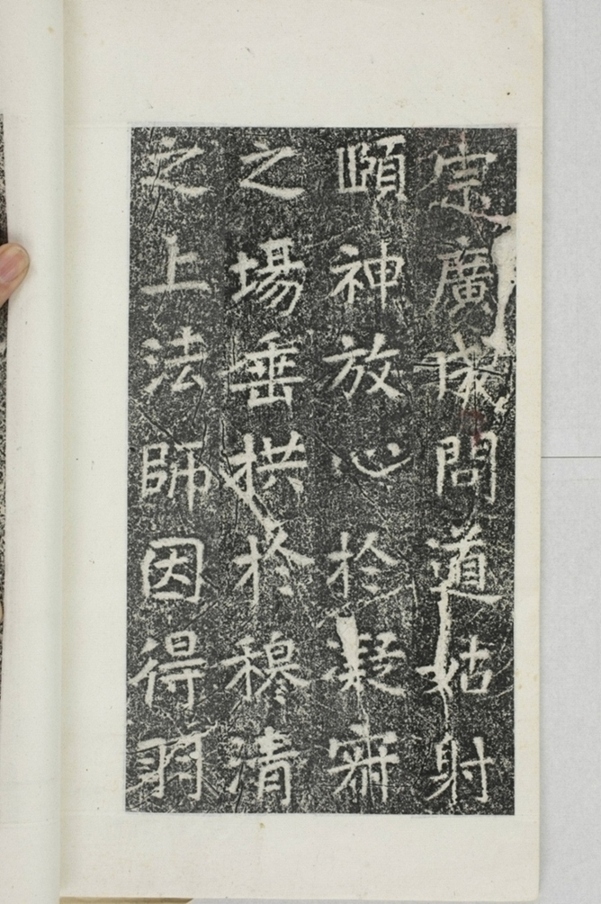 廣成問道姑射
頤神放心於凝寂
之場垂拱於穆清
之上法師因得